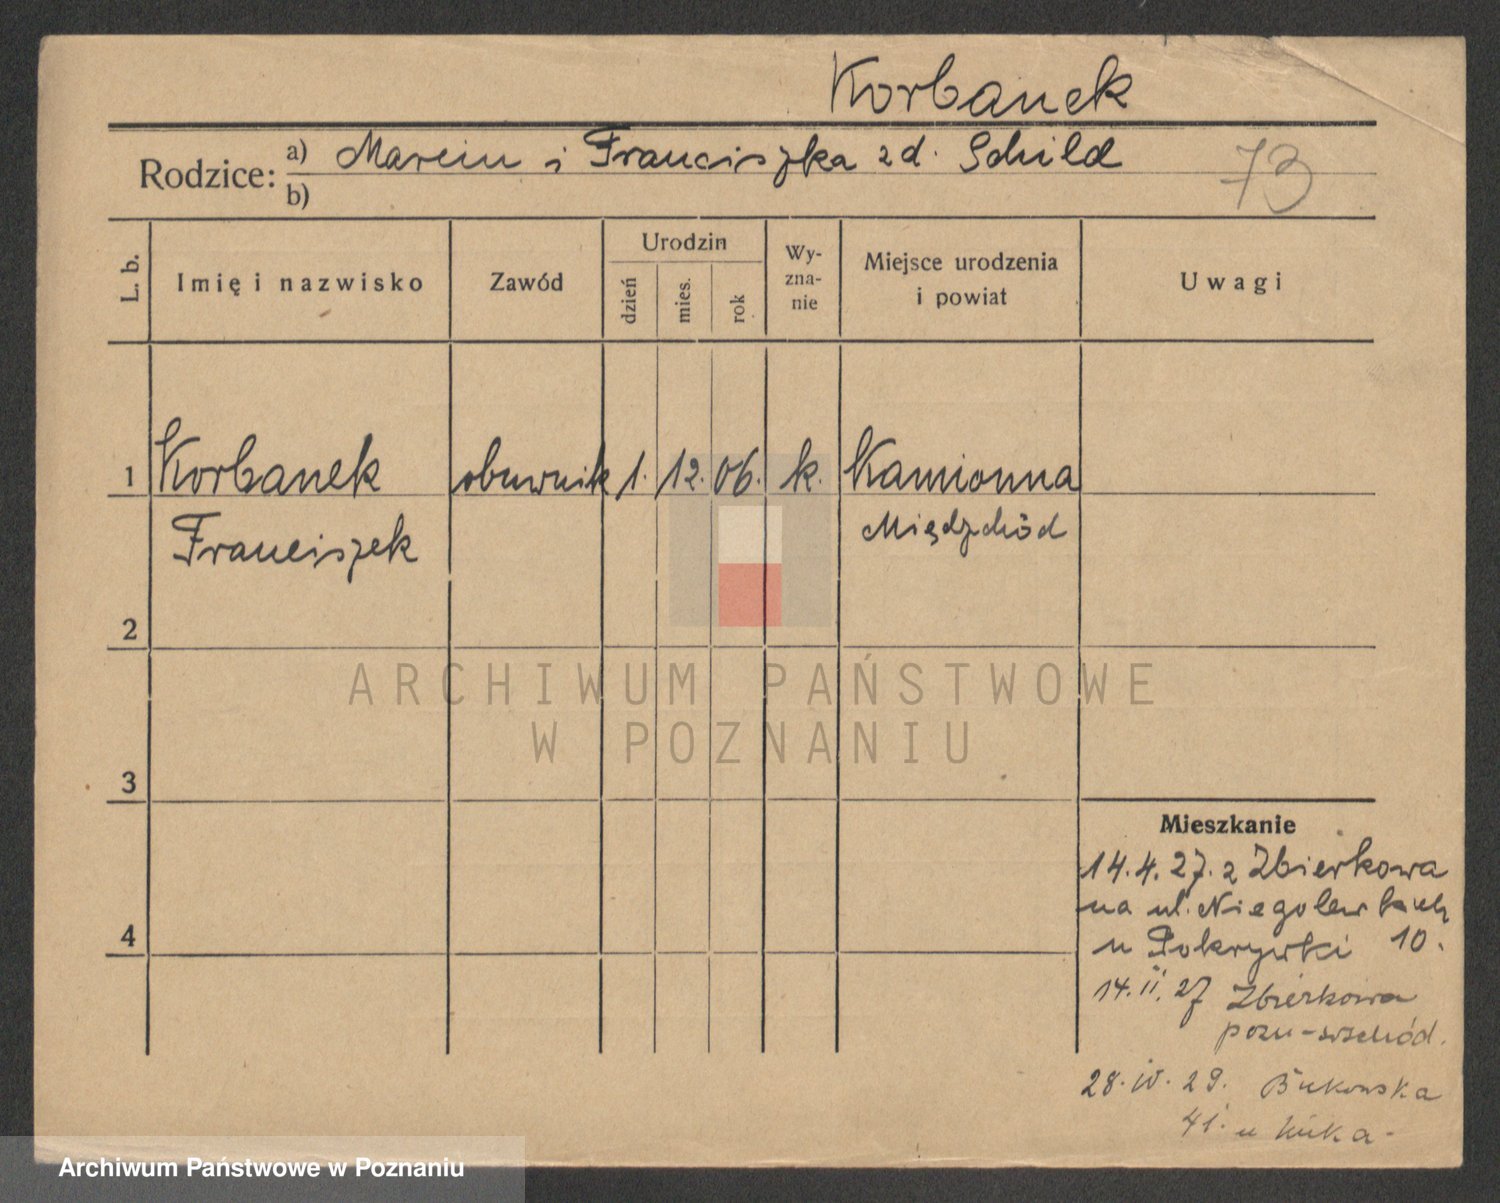 Korbanek
Rodzice: a) Marcin i Franciszka zd. Schild
b)
73
L. b.
Imię i nazwisko
Zawód
Urodzin
dzień
mies.
rok
Wy-
zna-
nie
Miejsce urodzenia
i powiat
Uwagi
1 Korbanek obuwnik 1. 12. 06. k. Kamionna
Franciszek Międzychód
2
3
4
Mieszkanie
14.4.27. z Zbierkowa
na ul. Niegolewskich
u Pokrywki 10.
14.II.27 Zbierkowa
pozn-wschód.
28.IV.29. Bukowska
41. u
ARCHIWUM PAŃSTWOWE
W POZNANIU
Archiwum Państwowe w Poznaniu